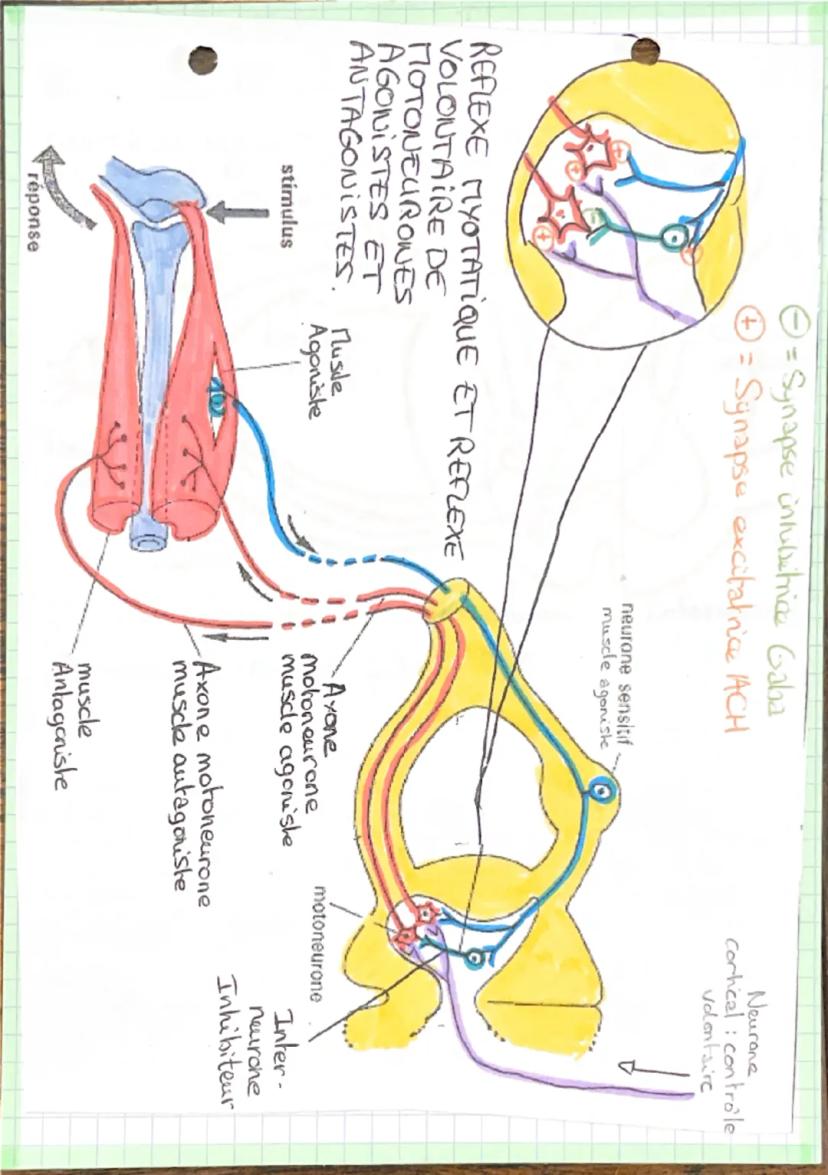 ⊖ = Synapse inhibitrice Gaba
⊕ = Synapse excitatrice ACH
Neurone
cortical : contrôle
volontaire
neurone sensitif
muscle agoniste
REFLEXE MYOTATIQUE ET REFLEXE
VOLONTAIRE DE
MOTONEURONES
AGONISTES ET
ANTAGONISTES.
stimulus
réponse
Muscle
Agoniste
Axone
motoneurone
muscle agoniste
motoneurone
Inter-
neurone
Inhibiteur
Axone motoneurone
muscle antagoniste
muscle
Antagoniste